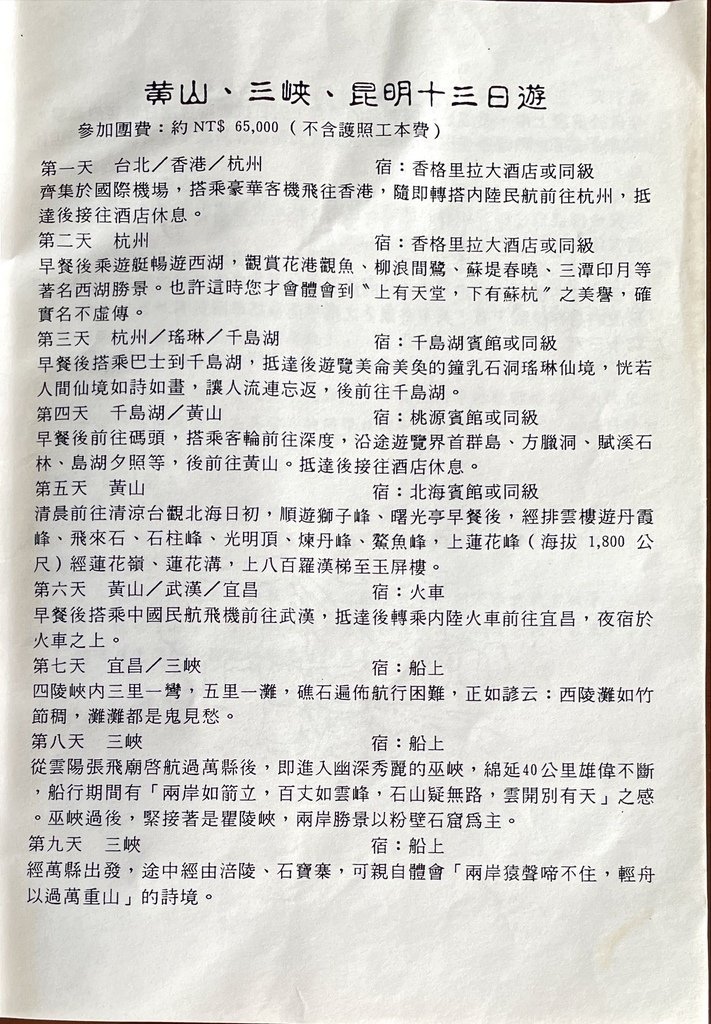 黃山、三峽、昆明十三日遊
參加團費：約NT$ 65,000（不含護照工本費）
第一天　台北／香港／杭州　宿：香格里拉大酒店或同級
齊集於國際機場，搭乘豪華客機飛往香港，隨即轉搭內陸民航前往杭州，抵
達後接往酒店休息。
第二天　杭州　宿：香格里拉大酒店或同級
早餐後乘遊艇暢遊西湖，觀賞花港觀魚、柳浪聞鶯、蘇堤春曉、三潭印月等
著名西湖勝景。也許這時您才會體會到〝上有天堂，下有蘇杭〞之美譽，確
實名不虛傳。
第三天　杭州／瑤琳／千島湖　宿：千島湖賓館或同級
早餐後搭乘巴士到千島湖，抵達後遊覽美侖美奐的鐘乳石洞瑤琳仙境，恍若
人間仙境如詩如畫，讓人流連忘返，後前往千島湖。
第四天　千島湖／黃山　宿：桃源賓館或同級
早餐後前往碼頭，搭乘客輪前往深度，沿途遊覽界首群島、方臘洞、賦溪石
林、島湖夕照等，後前往黃山。抵達後接往酒店休息。
第五天　黃山　宿：北海賓館或同級
清晨前往清涼台觀北海日初，順遊獅子峰、曙光亭早餐後，經排雲樓遊丹霞
峰、飛來石、石柱峰、光明頂、煉丹峰、鰲魚峰，上蓮花峰（海拔 1,800 公
尺）經蓮花嶺、蓮花溝，上八百羅漢梯至玉屏樓。
第六天　黃山／武漢／宜昌　宿：火車
早餐後搭乘中國民航飛機前往武漢，抵達後轉乘內陸火車前往宜昌，夜宿於
火車之上。
第七天　宜昌／三峽　宿：船上
四陵峽內三里一彎，五里一灘，礁石遍佈航行困難，正如諺云：西陵灘如竹
節稠，灘灘都是鬼見愁。
第八天　三峽　宿：船上
從雲陽張飛廟啓航過萬縣後，即進入幽深秀麗的巫峽，綿延40公里雄偉不斷
，船行期間有「兩岸如箭立，百丈如雲峰，石山疑無路，雲開別有天」之感
。巫峽過後，緊接著是瞿陵峽，兩岸勝景以粉壁石窟為主。
第九天　三峽　宿：船上
經萬縣出發，途中經由涪陵、石寶寨，可親自體會「兩岸猿聲啼不住，輕舟
以過萬重山」的詩境。